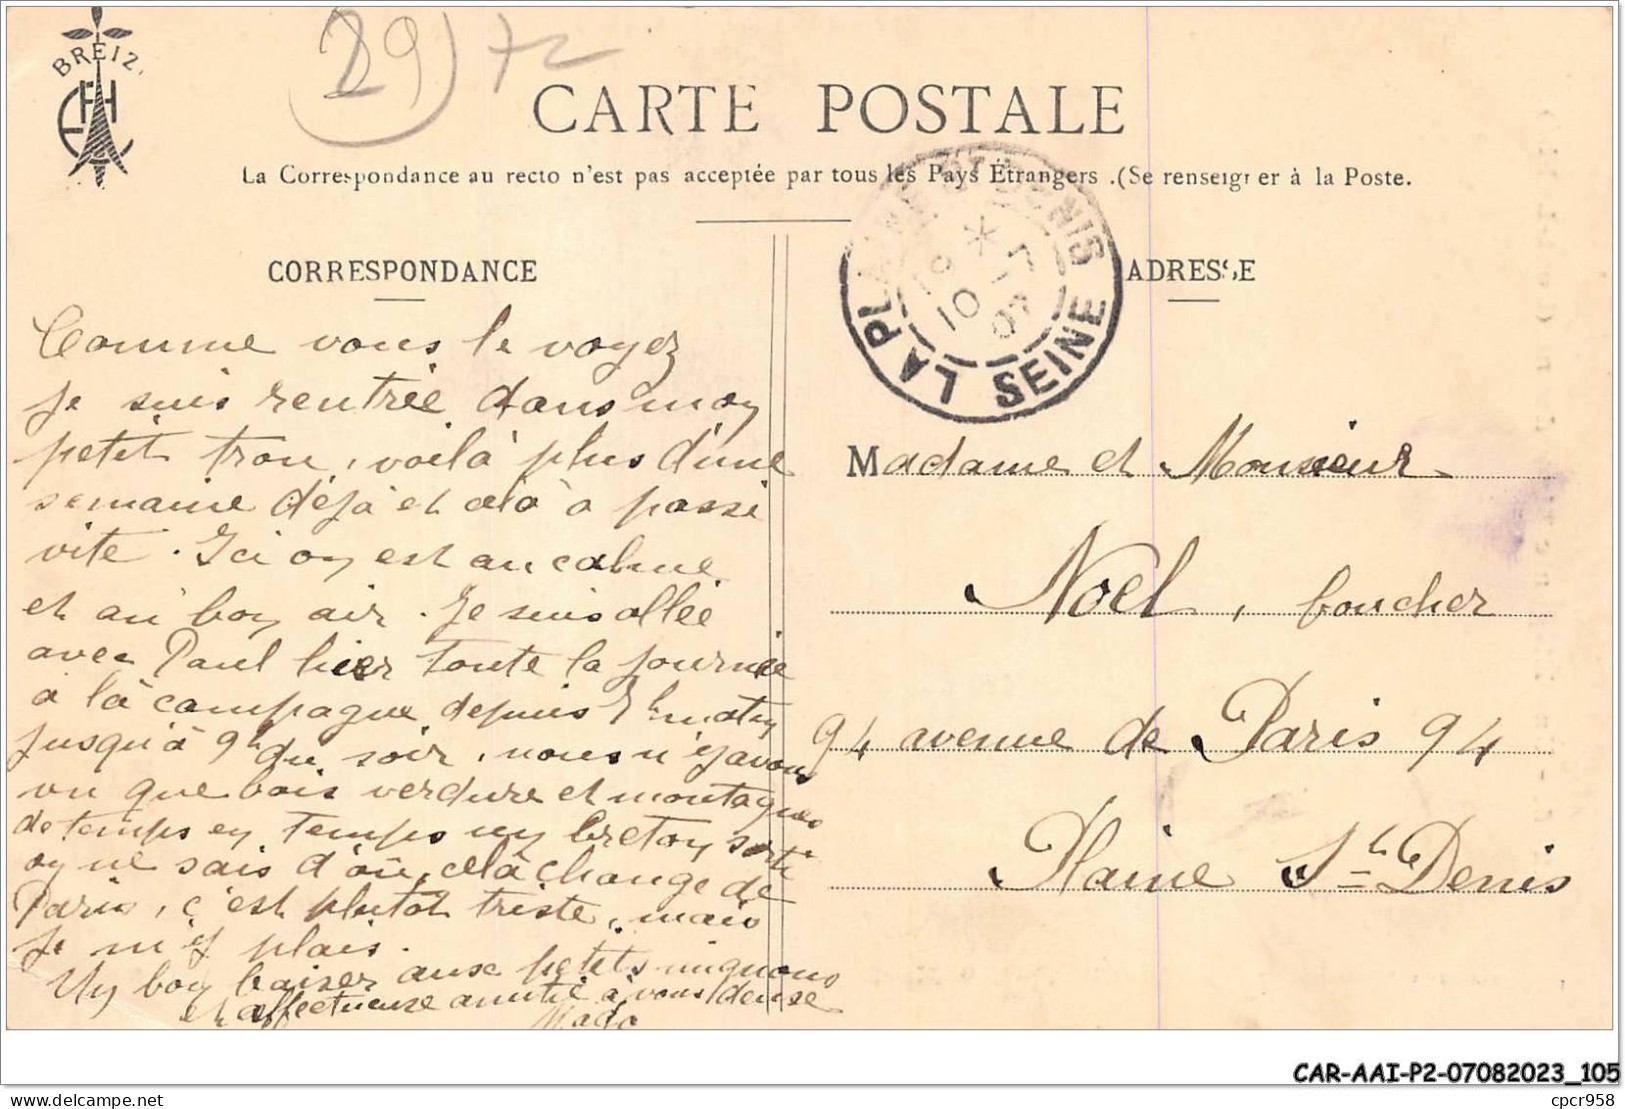 BREIZ
29) 72
CARTE POSTALE
La Correspondance au recto n'est pas acceptée par tous les Pays Étrangers .(Se renseigner à la Poste.
CORRESPONDANCE
Comme vous le voyez
je suis rentrée dans mon
petit trou, voilà plus d'une
semaine déjà et cela a passé
vite. Ici on est au calme
et au bon air. Je suis allée
avec Paul hier toute la journée
à la campagne depuis h matin
jusqu'à 9h du soir, nous n'y avons
vu que bois verdure et montagnes
de temps en temps un breton sorti
on ne sais d'où, celà change de
Paris, c'est plutôt triste, mais
je m'y plais.
Un bon baiser aux petits mignons
et affectueuse amitié à vous deuse
Mado
LA PLAINE ST DENIS
SEINE
ADRESSE
Madame et Monsieur
Noël, boucher
94 avenue de Paris 94
Plaine St-Denis
CAR-AAI-P2-07082023_105
www.delcampe.net
cpcr958